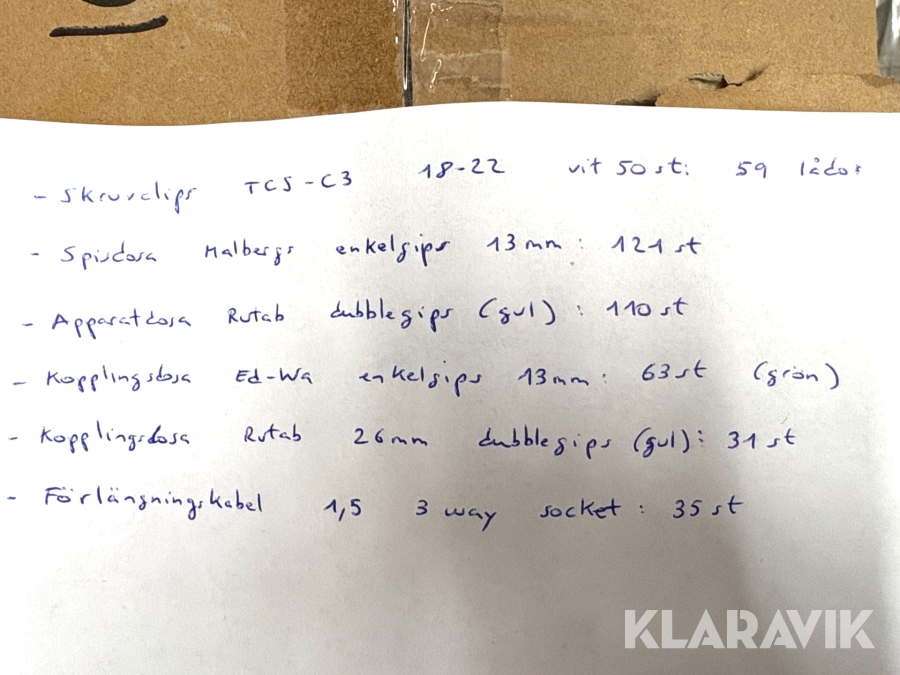 - Skruvclips TCS-C3 18-22 vit 50st: 59 lådor
- Spisdosa Malbergs enkelgips 13mm: 121st
- Apparatdosa Rutab dubblegips (gul): 110st
- Kopplingsdosa Ed-Wa enkelgips 13mm: 63st (grön)
- Kopplingsdosa Rutab 26mm dubblegips (gul): 31st
- Förlängningskabel 1,5 3 way socket: 35st
KLARAVIK